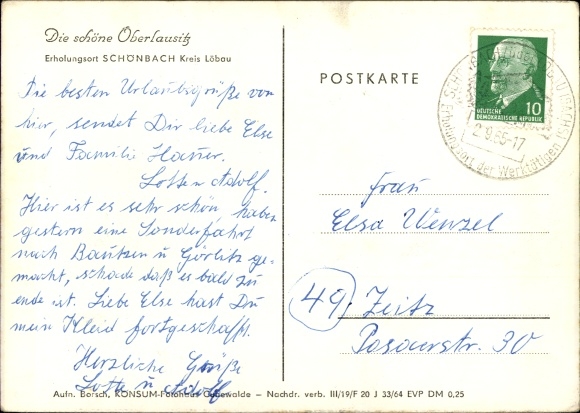 Die schöne Oberlausitz
Erholungsort SCHÖNBACH Kreis Löbau
Die besten Urlaubsgrüße von
hier, sendet Dir liebe Else
und Familie
Adolf.
Hier ist es sehr schön, haben
gestern eine Sonderfahrt
nach Bautzen u Görlitz ge-
macht, schade daß es bald zu
ende ist. Liebe Else hast Du
mein Kleid fortgeschafft.
Herzliche Grüße
Lotte u Adolf
POSTKARTE
DEUTSCHE
DEMOKRATISCHE REPUBLIK
10
2.9.65-17
Erholungsort der Werktätigen
Frau
Elsa Wenzel
49 Zeitz
Posaerstr. 30
Aufn. Borsch, KONSUM-Fotohaus – Nachdr. verb. III/19/F 20 J 33/64 EVP DM 0,25